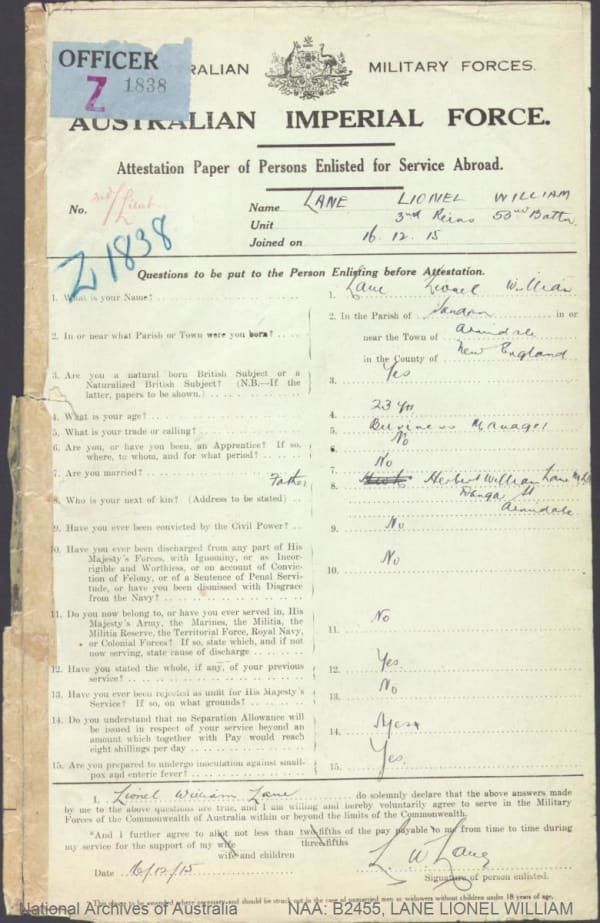 OFFICER
Z 1838
RALIAN MILITARY FORCES.
AUSTRALIAN IMPERIAL FORCE.
Attestation Paper of Persons Enlisted for Service Abroad.
No. 2nd/Lieut.
Name LANE LIONEL WILLIAM
Unit 3rd Reins 53rd Battn
Joined on 16.12.15
Z 1838
Questions to be put to the Person Enlisting before Attestation.
1. What is your Name? 1. Lane Lionel William
2. In or near what Parish or Town were you born? 2. In the Parish of in or
near the Town of
in the County of New England
3. Are you a natural born British Subject or a
Naturalized British Subject? (N.B.—If the
latter, papers to be shown.) 3. Yes
4. What is your age? 4. 23 yrs
5. What is your trade or calling? 5. Business Manager
6. Are you, or have you been, an Apprentice? If so,
where, to whom, and for what period? 6. No
7. Are you married? 7. No
8. Who is your next of kin? (Address to be stated) Father 8. Herbert William Lane
St
9. Have you ever been convicted by the Civil Power? 9. No
10. Have you ever been discharged from any part of His
Majesty's Forces, with Ignominy, or as Incor-
rigible and Worthless, or on account of Convic-
tion of Felony, or of a Sentence of Penal Servi-
tude, or have you been dismissed with Disgrace
from the Navy? 10. No
11. Do you now belong to, or have you ever served in, His
Majesty's Army, the Marines, the Militia, the
Militia Reserve, the Territorial Force, Royal Navy,
or Colonial Forces? If so, state which, and if not
now serving, state cause of discharge 11. No
12. Have you stated the whole, if any, of your previous
service? 12. Yes
13. Have you ever been rejected as unfit for His Majesty's
Service? If so, on what grounds? 13. No
14. Do you understand that no Separation Allowance will
be issued in respect of your service beyond an
amount which together with Pay would reach
eight shillings per day 14. Yes
15. Are you prepared to undergo inoculation against small-
pox and enteric fever? 15. Yes.
I, Lionel William Lane do solemnly declare that the above answers made
by me to the above questions are true, and I am willing and hereby voluntarily agree to serve in the Military
Forces of the Commonwealth of Australia within or beyond the limits of the Commonwealth.
*And I further agree to allot not less than two-fifths of the pay payable to me from time to time during
three-fifths
my service for the support of my wife
wife and children
Date 16/12/15 L. W. Lane
Signature of person enlisted.
National Archives of Australia NAA: B2455, LANE LIONEL WILLIAM